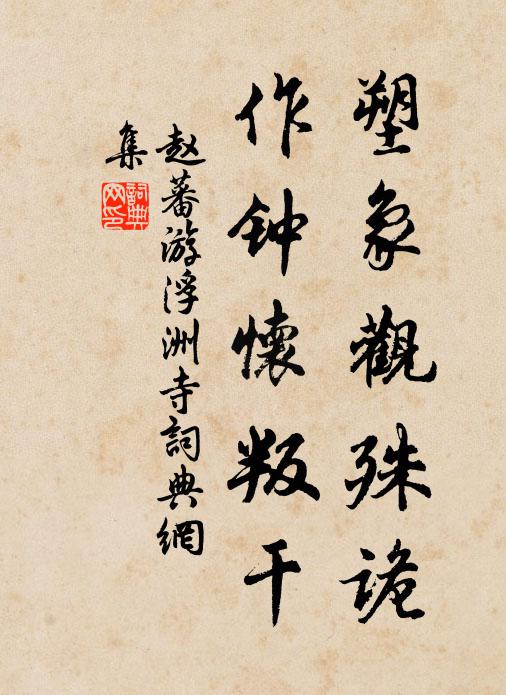 塑象觀殊詭
作钟懷叛干
赵蕃游浮洲寺詞典網
集
詞典网印